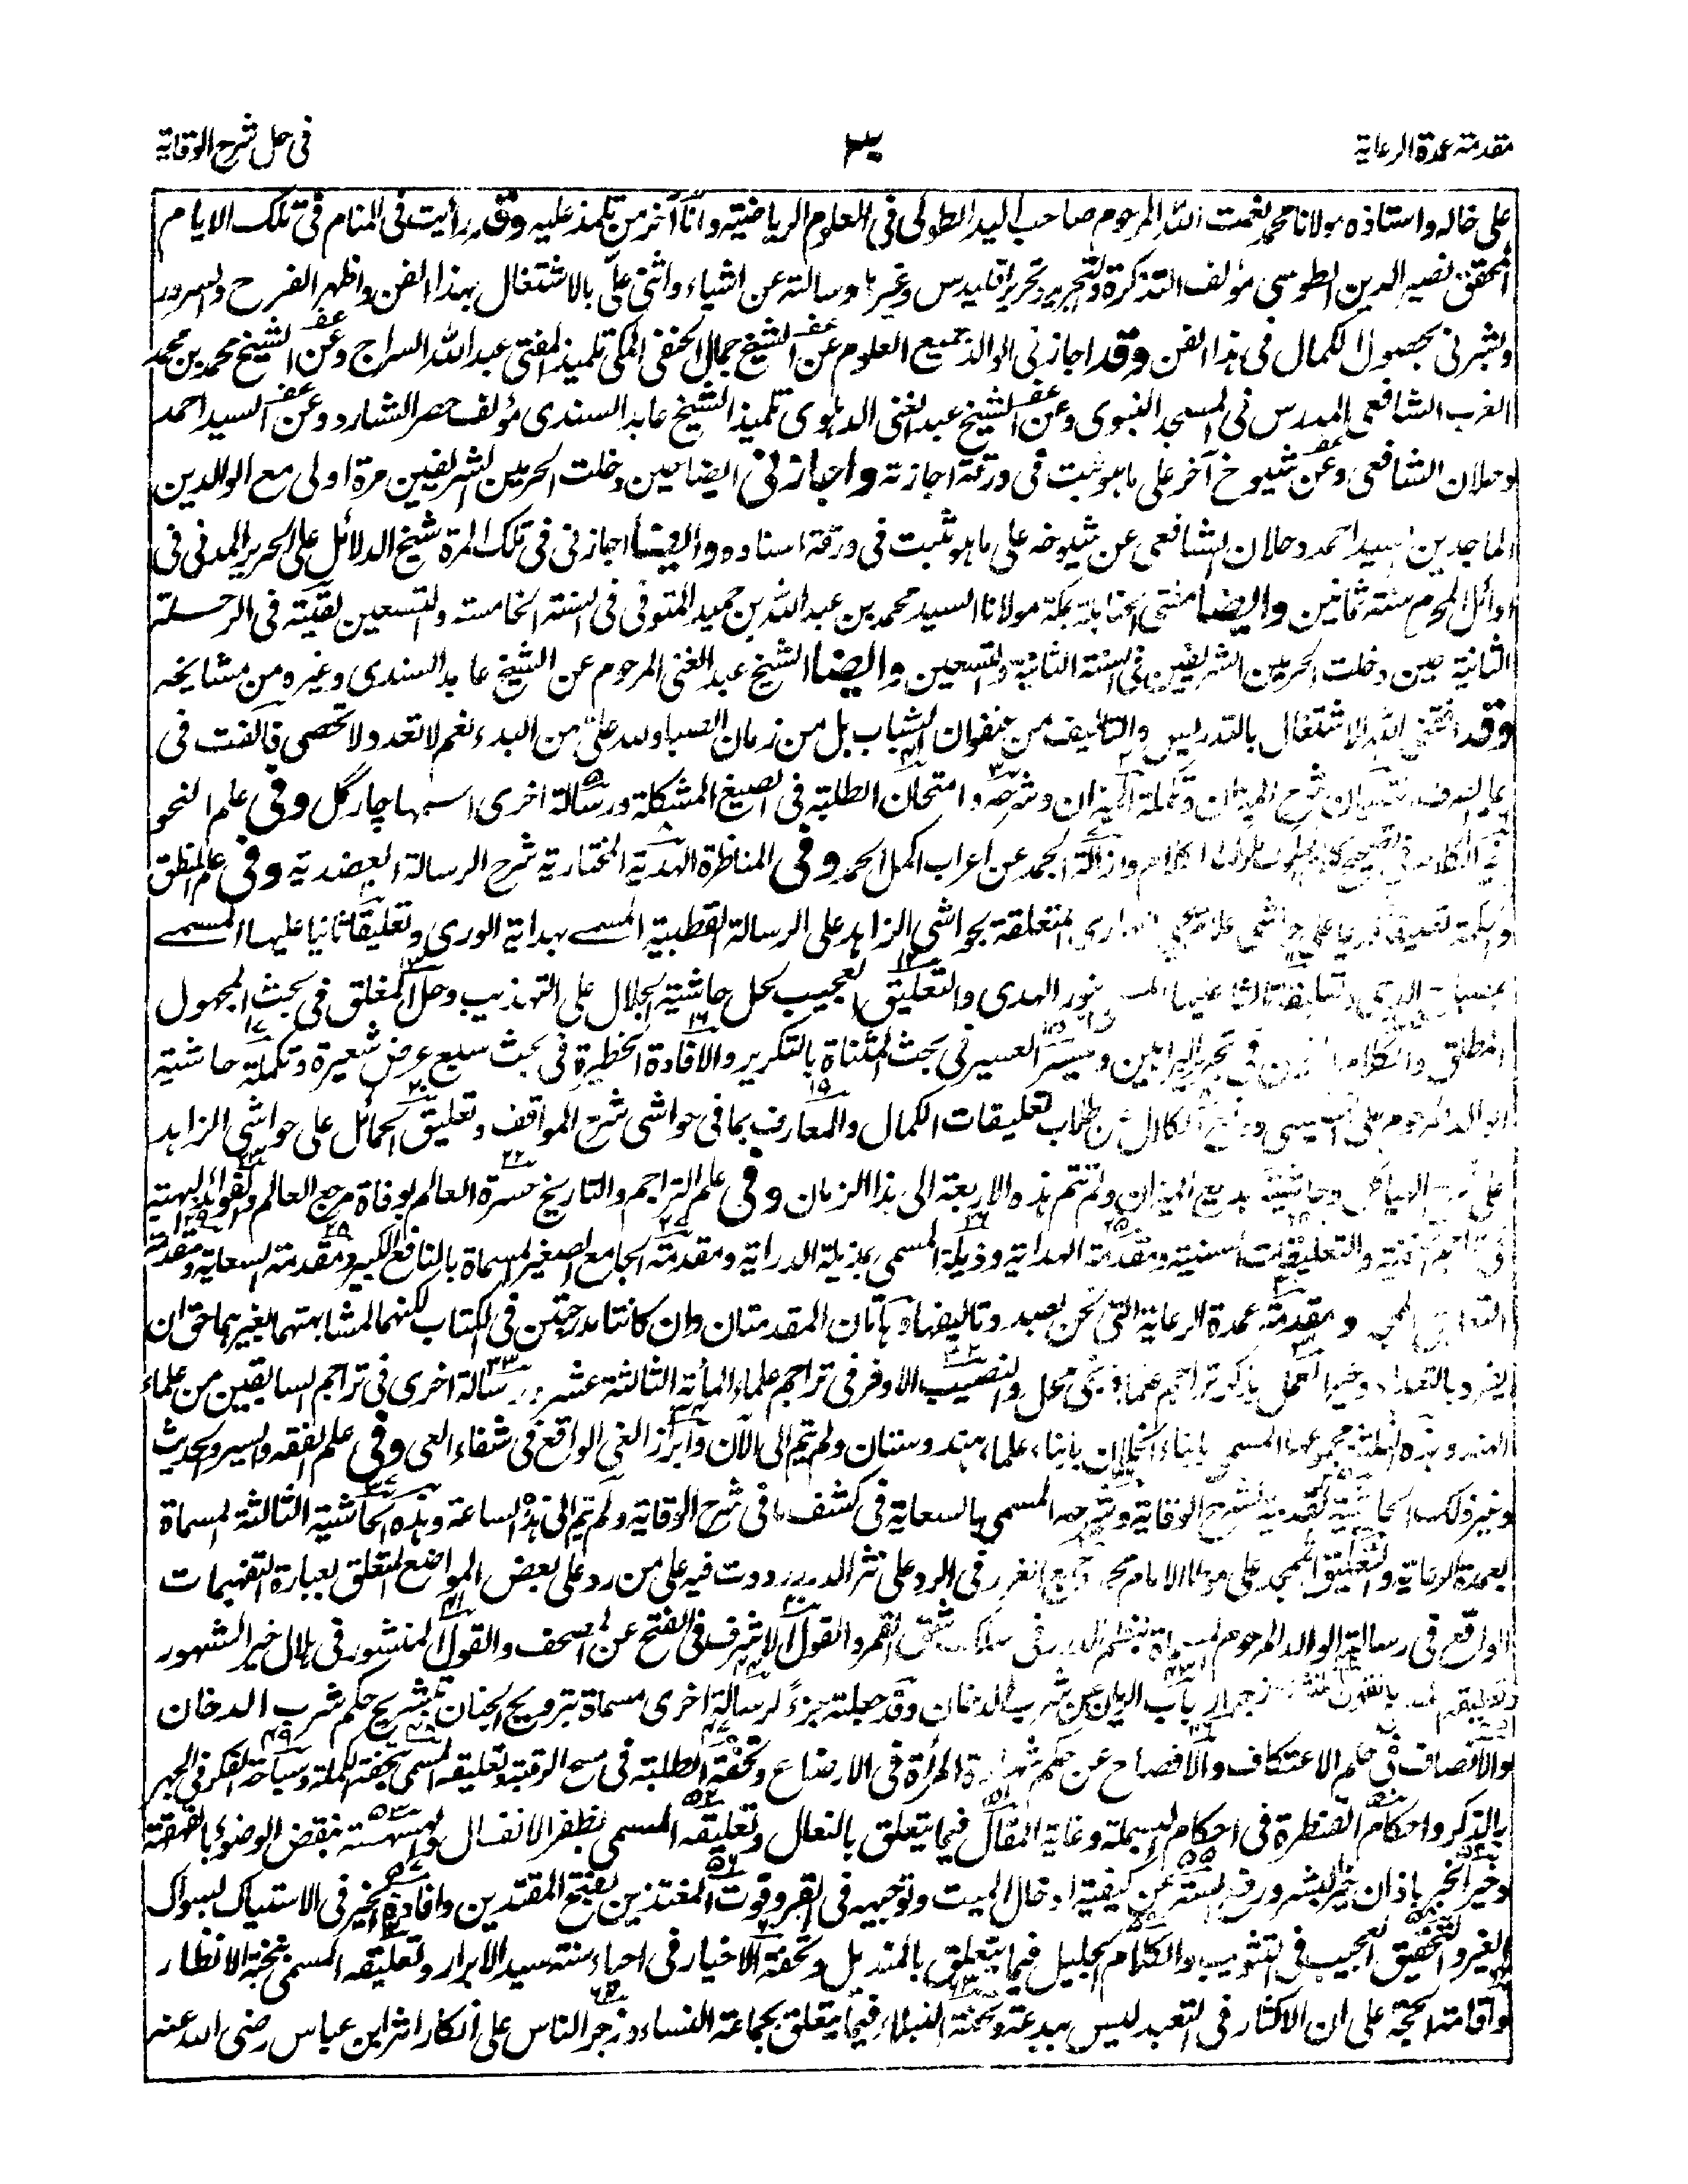 مقدمة عمدة الرعاية
٣٠
في حل شرح الوقاية
على خاله واستاذه مولانا محمد نعمت الله المرحوم صاحب اليد الطولى فى العلوم الرياضية وانا آخر من تلمذ عليه وقد رأيت فى المنام فى تلك الايام
المحقق نصير الدين الطوسى مؤلف التذكرة والتجريد وتحرير اقليدس وغيرها وسألته عن اشياء واثنى علىّ بالاشتغال بهذا الفن واظهر الفرح والسرور
وبشرنى بحصول الكمال فى هذا الفن وقد اجازنى الوالد بجميع العلوم عن الشيخ جمال الحنفى المكى تلميذ المفتى عبد الله السراج وعن الشيخ محمد بن محمد
الغرب الشافعى المدرس فى المسجد النبوى وعن الشيخ عبد الغنى الدهلوى تلميذ الشيخ عابد السندى مؤلف حصر الشارد وعن السيد احمد
دحلان الشافعى وعن شيوخ آخر على ما هو ثبت فى ورقة اجازته واجازنى ايضا حين دخلت الحرمين الشريفين مرة اولى مع الوالدين
الماجدين السيد احمد دحلان الشافعى عن شيوخه على ما هو ثبت فى ورقة اسناده وايضا اجازنى فى تلك المرة شيخ الدلائل على الحرير المدنى فى
اوائل المحرم سنة ثمانين وايضا مفتى الحنابلة بمكة مولانا السيد محمد بن عبد الله بن حميد المتوفى فى السنة الخامسة والتسعين لقيته فى الرحلة
الثانية حين دخلت الحرمين الشريفين فى السنة الثانية والتسعين وايضا الشيخ عبد الغنى المرحوم عن الشيخ عابد السندى وغيره من مشايخه
وقد وفقنى الله للاشتغال بالتدريس والتاليف من عنفوان الشباب بل من زمان الصبا ولله علىّ من البدء نعم لا تعد ولا تحصى فالفت فى
علم الصرف شرح الميزان وتكملة الميزان وشرحه وامتحان الطلبة فى الصيغ المشكلة ورسالة اخرى اسمها چارگل وفى علم النحو
الكلام وازالة الجمد عن اعراب اكمل الحمد وفى المناظرة الهدية المختارية شرح الرسالة العضدية وفى علم المنطق
والحكمة تعليقا قديما على حواشى غلام يحيى البهارى المتعلقة بحواشى الزاهد على الرسالة القطبية المسمى بهداية الورى وتعليقا ثانيا عليها المسمى
بمصباح الدجى وتعليقا ثالثا عليها المسمى بنور الهدى والتعليق العجيب بحل حاشية الجلال على التهذيب وحل المغلق فى بحث المجهول
المطلق والكلام المتين فى تحرير البراهين وميسر العسير فى بحث المثناة بالتكرير والافادة الخطيرة فى بحث سبع عرض شعيرة وتكملة حاشية
الوالد المرحوم على النفيسى ودفع الكلال عن طلاب تعليقات الكمال والمعارف بما فى حواشى شرح المواقف وتعليق الحمائل على حواشى الزاهد
على شرح الهياكل وحاشية بديع الميزان ولم تتم هذه الاربعة الى هذا الزمان وفى علم التراجم والتاريخ حسرة العالم بوفاة مرجع العالم والفوائد البهية
فى تراجم الحنفية والتعليقات السنية ومقدمة الهداية وذيله المسمى بمذيلة الدراية ومقدمة الجامع الصغير المسماة بالنافع الكبير ومقدمة السعاية ومقدمة
التعليق الممجد ومقدمة عمدة الرعاية التى نحن بصدد تاليفها وهاتان المقدمتان وان كانتا مدرجتين فى الكتاب لكنهما لمشابهتهما بغيرهما حق ان
يفرد بالتعداد وخير العمل بذكر تراجم علماء فرنجى محل والنصيب الاوفر فى تراجم علماء المأية الثالثة عشر ورسالة اخرى فى تراجم السابقين من علماء
الهند وهذه الثلثة مجموعها المسمى بانباء الخلان بانباء علماء هندوستان ولم تتم الى الآن وابراز الغى الواقع فى شفاء العى وفى علم الفقه والسير والحديث
وغير ذلك الحاشية القديمة لشرح الوقاية وشرحه المسمى بالسعاية فى كشف ما فى شرح الوقاية ولم يتم الى هذه الساعة وهذه الحاشية الثالثة المسماة
بعمدة الرعاية والتعليق الممجد على موطا الامام محمد وجمع الغرر فى الرد على نثر الدرر رددت فيه على من رد على بعض المواضع المتعلق بعبارة التفهيمات
الواقع فى رسالة الوالد المرحوم المسماة بنظم الدرر فى سلك شق القمر والقول الاشرف فى الفتح عن المصحف والقول المنشور فى هلال خير الشهور
وتعليقه المسمى بالقول المنثور وزجر ارباب الريان عن شرب الدخان وقد جعلته جزءً لرسالة اخرى مسماة بترويح الجنان بتشريح حكم شرب الدخان
والانصاف فى حكم الاعتكاف والافصاح عن حكم شهادة المرأة فى الارضاع وتحفة الطلبة فى مسح الرقبة وتعليقه المسمى بتحفة الكملة وسباحة الفكر فى الجهر
بالذكر واحكام القنطرة فى احكام البسملة وغاية المقال فيما يتعلق بالنعال وتعليقه المسمى بظفر الانفال والهسهسة بنقض الوضوء بالقهقهة
وخير الخبر باذان خير البشر ورفع الستر عن كيفية ادخال الميت وتوجيهه فى القبر وقوت المغتذين بفتح المقتدين وافادة الخير فى الاستياك بسواك
الغير والتحقيق العجيب فى التثويب والكلام الجليل فيما يتعلق بالمنديل وتحفة الاخيار فى احياء سنة سيد الابرار وتعليقه المسمى بنخبة الانظار
واقامة الحجة على ان الاكثار فى التعبد ليس ببدعة وتحفة النبلاء فيما يتعلق بجماعة النساء وزجر الناس على انكار اثر ابن عباس رضى الله عنه